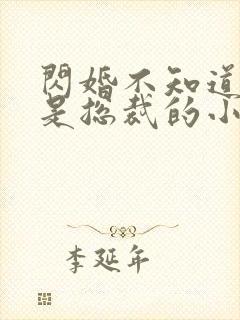 閃婚不知道
是總裁的小
李延年